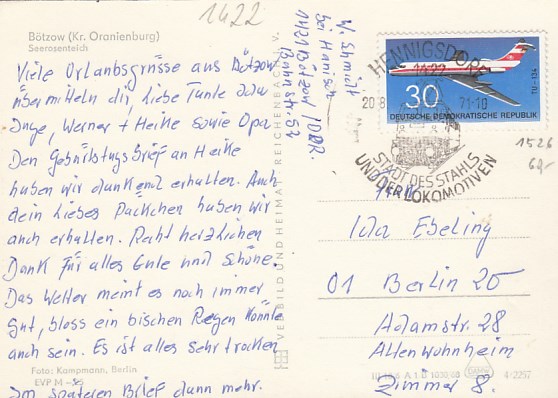 1422
Bötzow (Kr. Oranienburg)
Seerosenteich
Viele Urlaubsgrüsse aus Bötzow
übermitteln dir, liebe Tante
Inge, Werner + Heike sowie Opa.
Den Geburtstagsbrief an Heike
haben wir dankend erhalten. Auch
dein liebes Päckchen haben wir
auch erhalten. Recht herzlichen
Dank für alles Gute und Schöne.
Das Wetter meint es noch immer
gut, bloss ein bischen Regen könnte
auch sein. Es ist alles sehr trocken
Im späteren Brief dann mehr.
Foto: Kampmann, Berlin
EVP M -,25
VEB BILD UND HEIMAT REICHENBACH i. V.
W. Schmidt
bei
1421 Bötzow / DDR
Bahnstr. 52
HENNIGSDORF
1422
20.8. 71-10
STADT DES STAHLS
UND DER LOKOMOTIVEN
30
DEUTSCHE DEMOKRATISCHE REPUBLIK
TU-134
1526
An
Ida Ebeling
01 Berlin 25
Adamstr. 28
Altenwohnheim
Zimmer 8.
4/2297